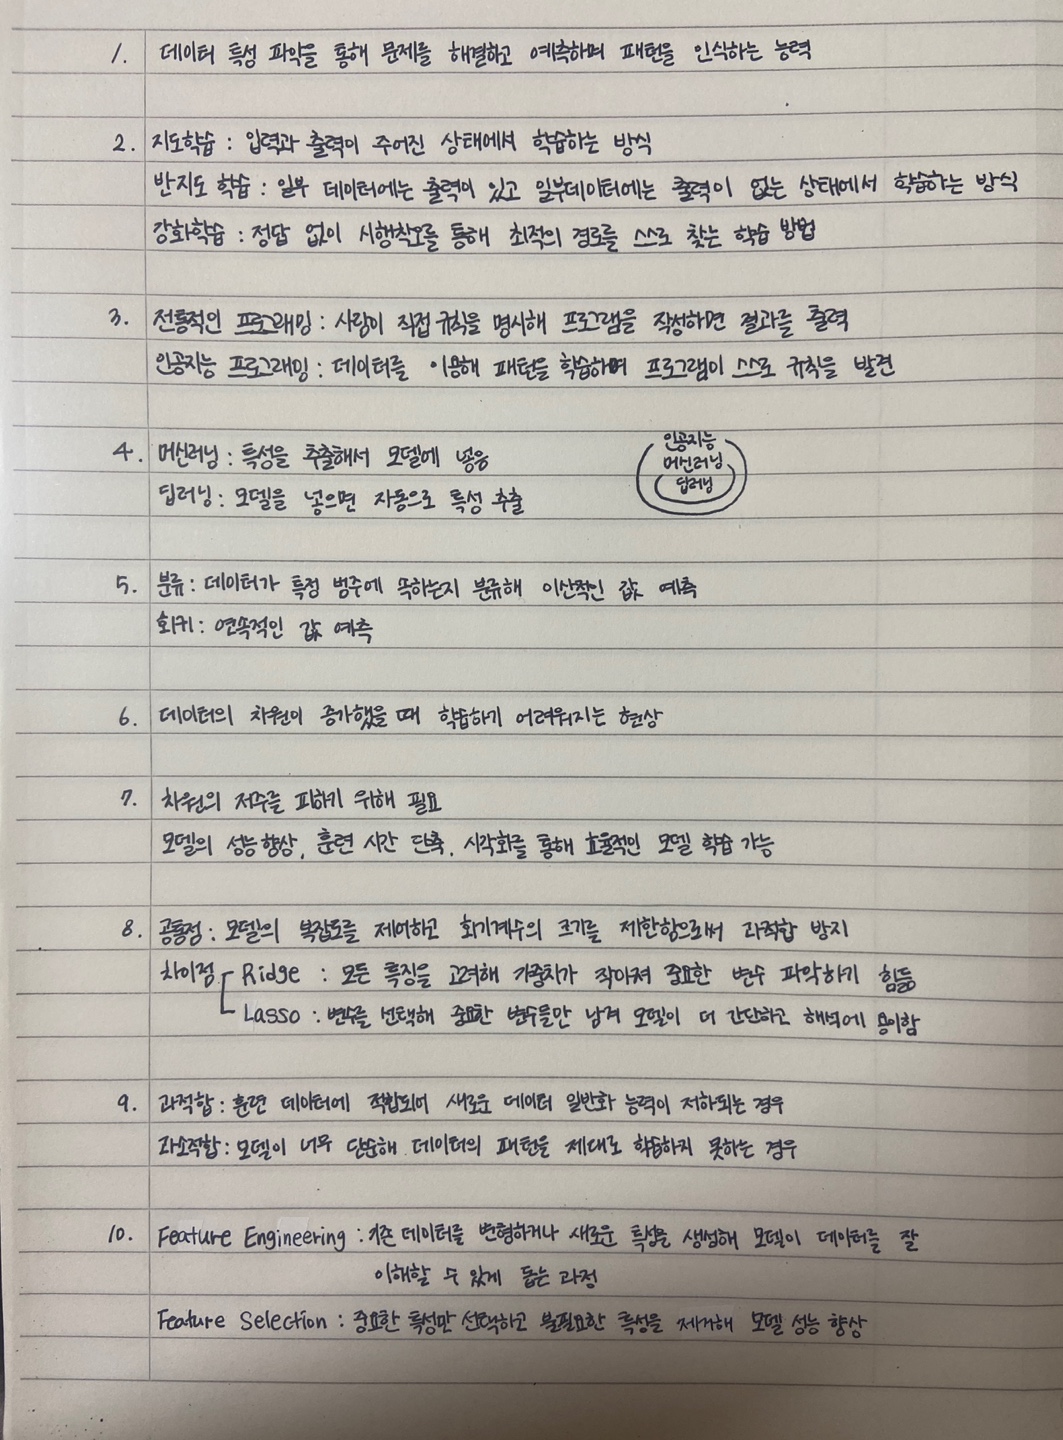 1. 데이터 특성 파악을 통해 문제를 해결하고 예측하며 패턴을 인식하는 능력
2. 지도학습 : 입력과 출력이 주어진 상태에서 학습하는 방식
반지도 학습 : 일부 데이터에는 출력이 있고 일부데이터에는 출력이 없는 상태에서 학습하는 방식
강화학습 : 정답 없이 시행착오를 통해 최적의 경로를 스스로 찾는 학습 방법
3. 전통적인 프로그래밍 : 사람이 직접 규칙을 명시해 프로그램을 작성하면 결과를 출력
인공지능 프로그래밍 : 데이터를 이용해 패턴을 학습하며 프로그램이 스스로 규칙을 발견
4. 머신러닝 : 특성을 추출해서 모델에 넣음
딥러닝 : 모델을 넣으면 자동으로 특성 추출
인공지능
머신러닝
딥러닝
5. 분류 : 데이터가 특정 범주에 속하는지 분류해 이산적인 값 예측
회귀 : 연속적인 값 예측
6. 데이터의 차원이 증가했을 때 학습하기 어려워지는 현상
7. 차원의 저주를 피하기 위해 필요
모델의 성능향상, 훈련 시간 단축, 시각화를 통해 효율적인 모델 학습 가능
8. 공통점 : 모델의 복잡도를 제어하고 회귀계수의 크기를 제한함으로써 과적합 방지
차이점 Ridge : 모든 특징을 고려해 가중치가 작아져 중요한 변수 파악하기 힘듦
Lasso : 변수를 선택해 중요한 변수들만 남겨 모델이 더 간단하고 해석에 용이함
9. 과적합 : 훈련 데이터에 적합되어 새로운 데이터 일반화 능력이 저하되는 경우
과소적합 : 모델이 너무 단순해 데이터의 패턴을 제대로 학습하지 못하는 경우
10. Feature Engineering : 기존 데이터를 변형하거나 새로운 특성을 생성해 모델이 데이터를 잘
이해할 수 있게 돕는 과정
Feature Selection : 중요한 특성만 선택하고 불필요한 특성을 제거해 모델 성능 향상